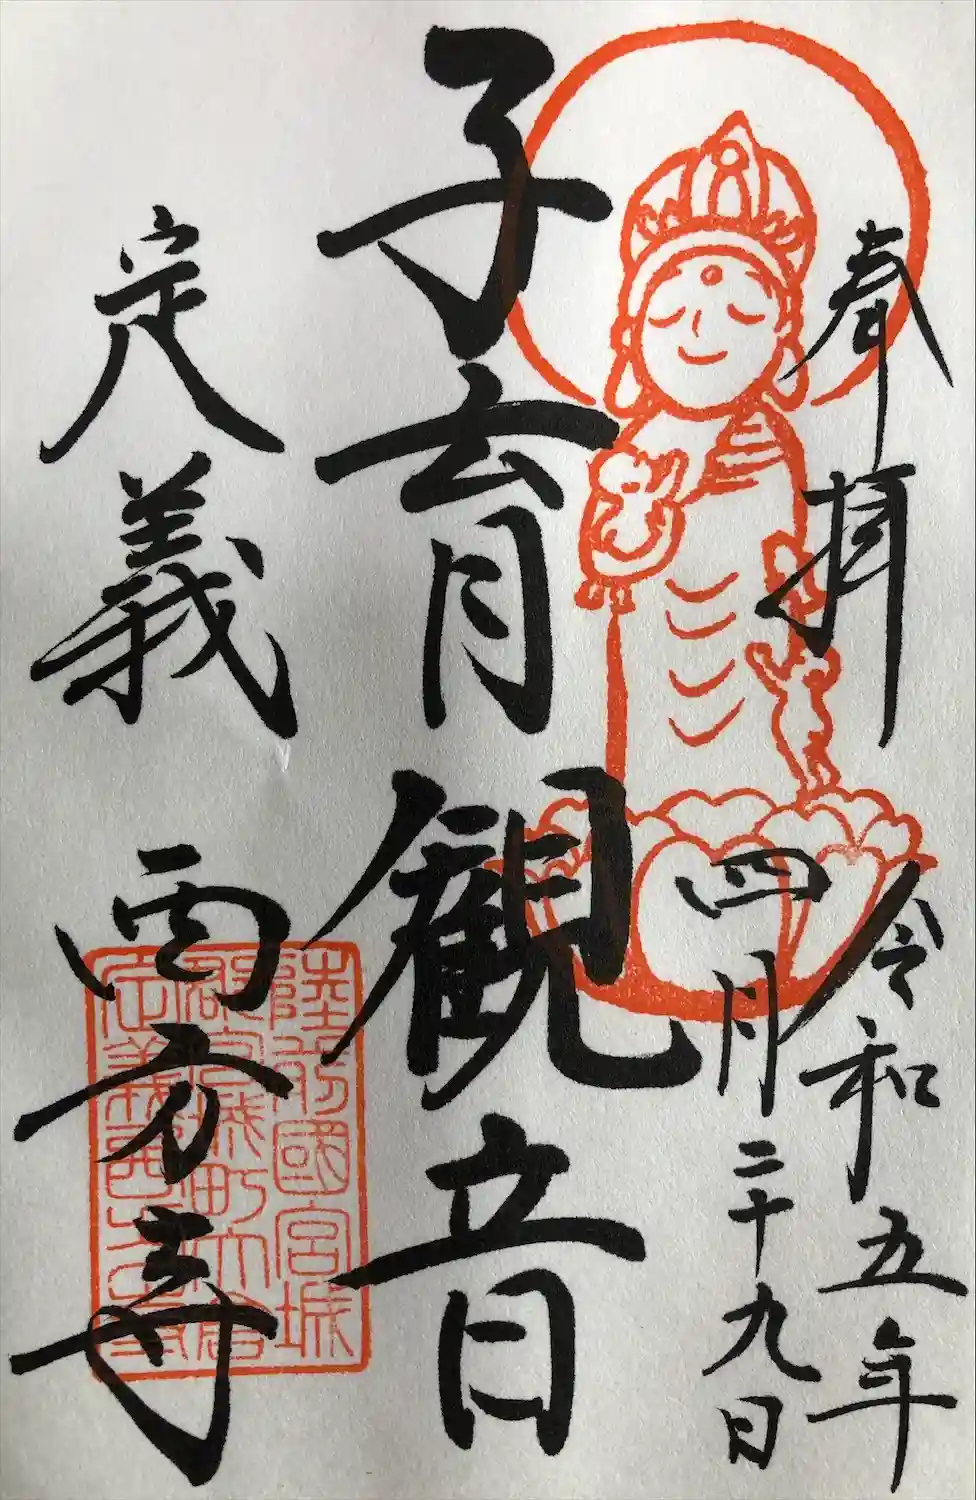 奉拝
令和五年
四月二十九日
子育観音
定義
西方寺
陸前國宮城
郡宮城町大倉
定義西方寺